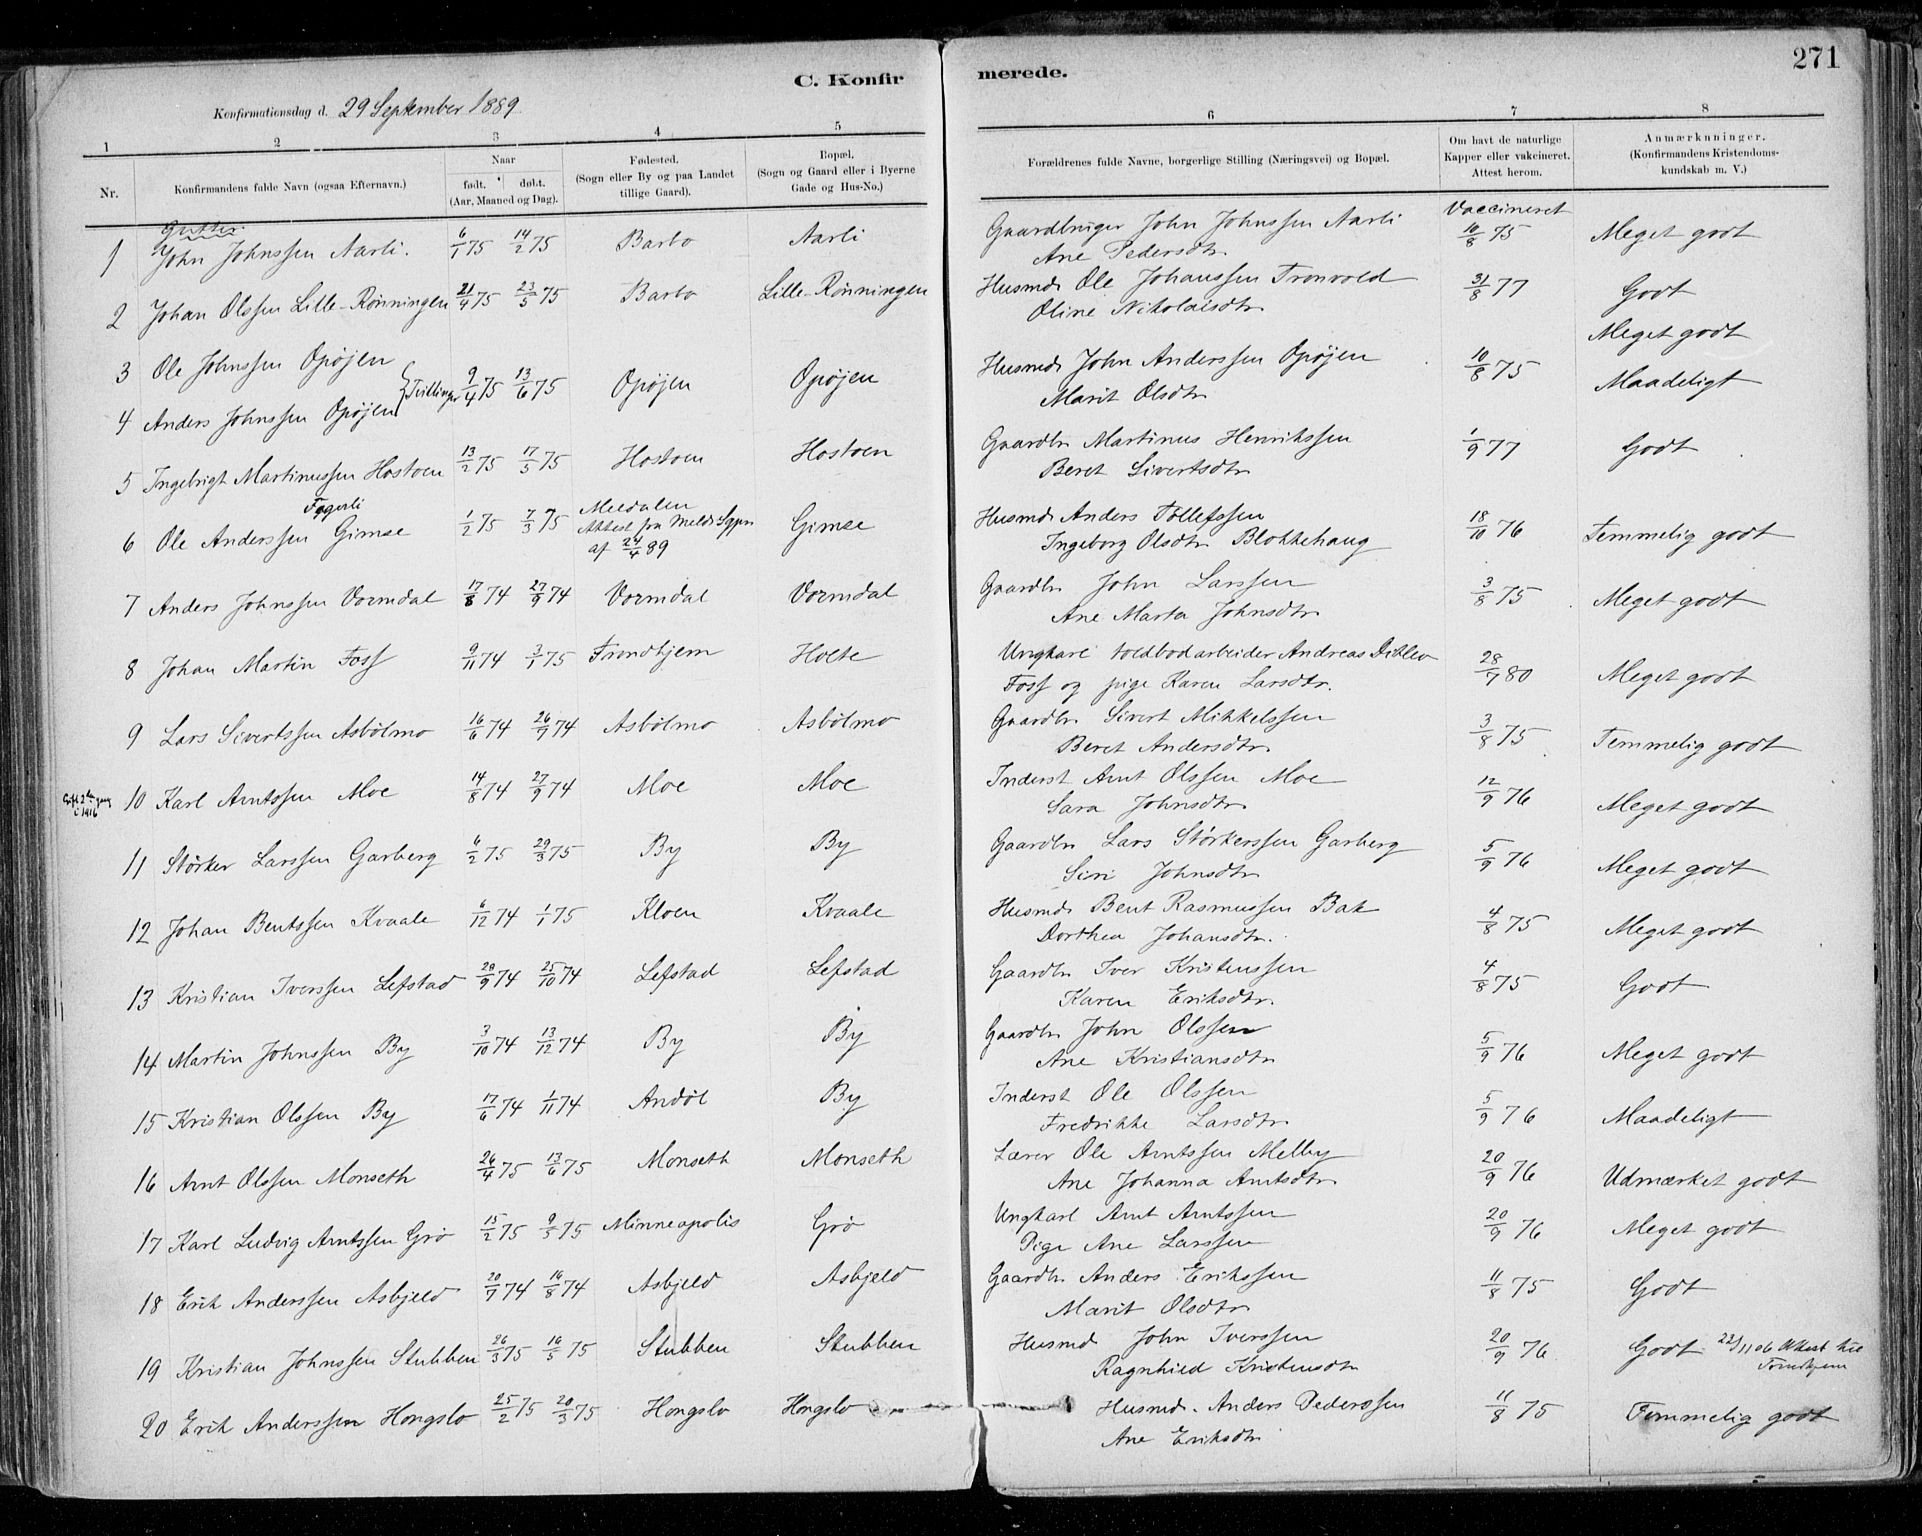 271
C. Konfirmerede.
Konfirmationsdag d. 29 September 1889
1 2 3 4 5 6 7 8
Nr. | Konfirmandens fulde Navn (ogsaa Efternavn.) | Naar født. døbt. (Aar, Maaned og Dag). | Fødested. (Sogn eller By og paa Landet tillige Gaard). | Bopæl. (Sogn og Gaard eller i Byerne Gade og Hus-No.) | Forældrenes fulde Navne, borgerlige Stilling (Næringsvei) og Bopæl. | Om havt de naturlige Kapper eller vakcineret. Attest herom. | Anmærkninger. (Konfirmandens Kristendomskundskab m. V.)
Gutter. Vaccineret
1 John Johnssen Aarli. 6/1 75 14/2 75 Barbo Aarli Gaardbruger John Johnssen Aarli 10/8 75 Meget godt
Ane Pedersdtr
2 Johan Olssen Lille-Rønningen 21/4 75 23/5 75 Barbo Lille-Rønningen Husmd Ole Johanssen Tronvold 31/8 77 Godt
Oline Nikolaisdtr
3 Ole Johnssen Opøjen Meget godt
{Tvillinger 9/4 75 13/6 75 Opøjen Opøjen Husmd John Anderssen Opøjen 10/8 75
4 Anders Johnssen Opøjen Marit Olsdtr Maadeligt
5 Ingebrigt Martinussen Hostoen 13/2 75 17/5 75 Hostoen Hostoen Gaardbr Martinus Henrikssen 1/9 77 Godt
Beret Sivertsdtr
Fagerli
6 Ole Anderssen Gimse 1/2 75 7/3 75 Meldalen Attest fra Meld. Sgpr af 24/4 89 Gimse Husmd Anders Tollefssen 18/10 76 Temmelig godt
Ingeborg Olsdtr Blokkehaug
7 Anders Johnssen Vormdal 17/8 74 27/9 74 Vormdal Vormdal Gaardbr John Larssen 3/8 75 Meget godt
Ane Marta Johnsdtr
8 Johan Martin Foss 9/11 74 3/1 75 Trondhjem Holte Ungkarl toldbodarbeider Andreas Ditlev 28/7 80 Meget godt
Foss og pige Karen Larsdtr.
9 Lars Sivertssen Asbølmo 16/6 74 26/7 74 Asbølmo Asbølmo Gaardbr Sivert Mikkelssen 3/8 75 Temmelig godt
Beret Andersdtr
Gift 2den gang i 1916
10 Karl Arntssen Moe 14/8 74 27/9 74 Moe Moe Inderst Arnt Olssen Moe 12/9 76 Meget godt
Sara Johnsdtr
11 Størker Larssen Garberg 6/2 75 29/3 75 By By Gaardbr Lars Størkerssen Garberg 5/9 76 Meget godt
Siri Johnsdtr
12 Johan Bentssen Kvaale 6/12 74 1/1 75 Kloen Kvaale Husmd Bent Rasmussen Bak 4/8 75 Meget godt
Dorthea Johansdtr.
13 Kristian Iverssen Lefstad 20/9 74 25/10 74 Lefstad Lefstad Gaardbr Iver Kristenssen 4/8 75 Godt
Karen Eriksdtr.
14 Martin Johnssen By 3/10 74 13/12 74 By By Gaardbr John Olssen 5/9 76 Meget godt
Ane Kristiansdtr
15 Kristian Olssen By 17/6 74 1/11 74 Andøl By Inderst Ole Olssen 5/9 76 Maadeligt
Fredrikke Larsdtr
16 Arnt Olssen Monseth 26/4 75 13/6 75 Monseth Monseth Lærer Ole Arntssen Melby 20/9 76 Udmærket godt
Ane Johanna Arntsdtr
17 Karl Ludvig Arntssen Grø 15/2 75 9/5 75 Minneapolis Grø Ungkarl Arnt Arntssen 20/9 76 Meget godt
Pige Ane Larssen
18 Erik Anderssen Asbjeld 20/7 74 16/8 74 Asbjeld Asbjeld Gaardbr. Anders Erikssen 11/8 75 Godt
Marit Olsdtr
19 Kristian Johnssen Stubben 26/3 75 16/5 75 Stubben Stubben Husmd John Iverssen 20/9 76 Godt 22/11 06 Attest til Trondhjem
Ragnhild Kristensdtr
20 Erik Anderssen Hongslo 25/2 75 20/3 75 Hongslo Hongslo Husmd. Anders Pederssen 11/8 75 Temmelig godt
Ane Eriksdtr